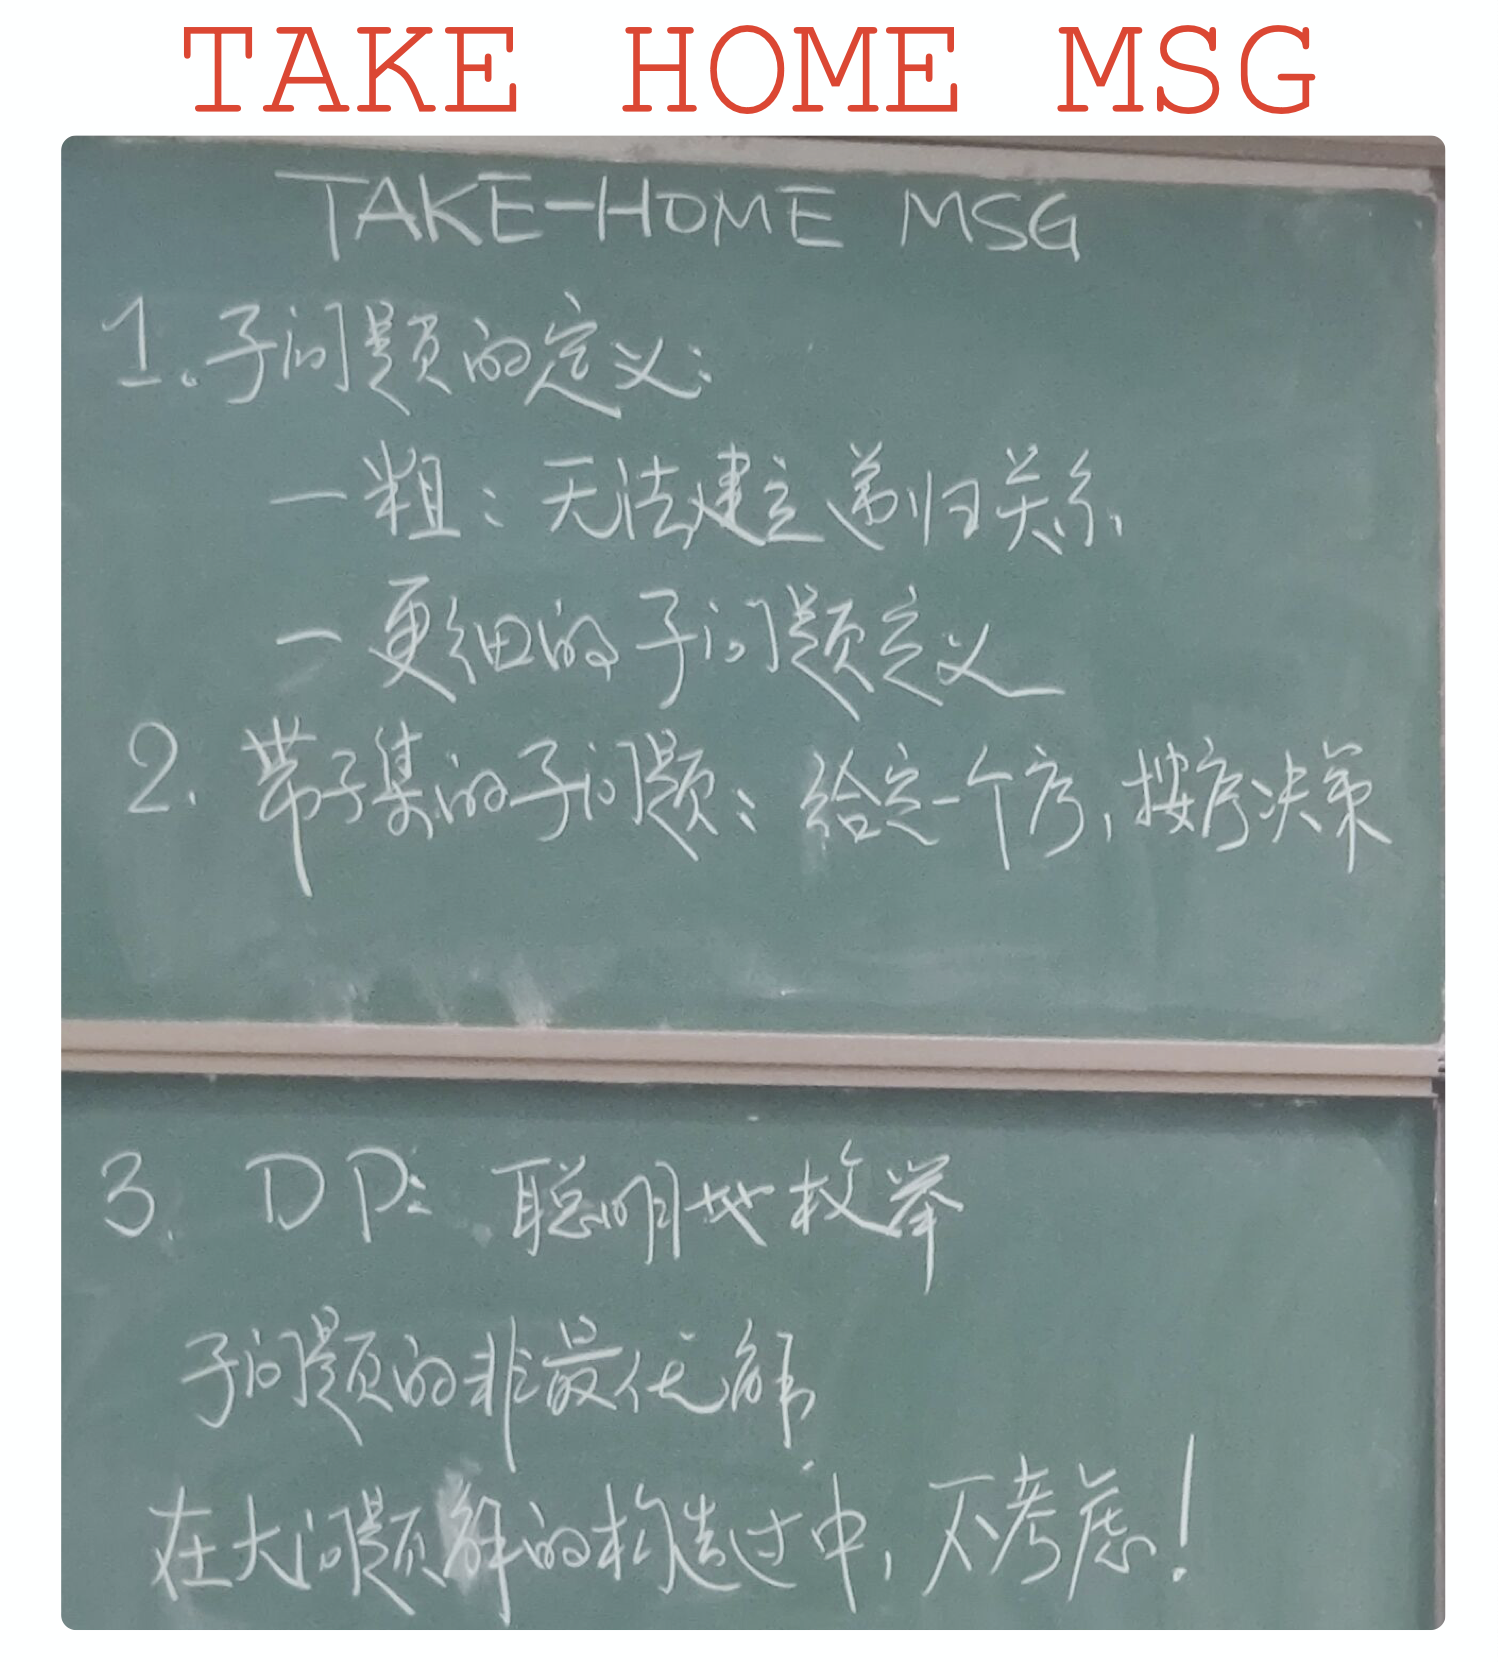 TAKE HOME MSG
TAKE-HOME MSG
1. 子问题的定义:
— 粗: 无法建立递归关系
— 更细的子问题定义
2. 带子集的子问题: 给定一个序, 按序决策
3. DP: 聪明地枚举
子问题的非最优解
在大问题解的构造过中, 不考虑!